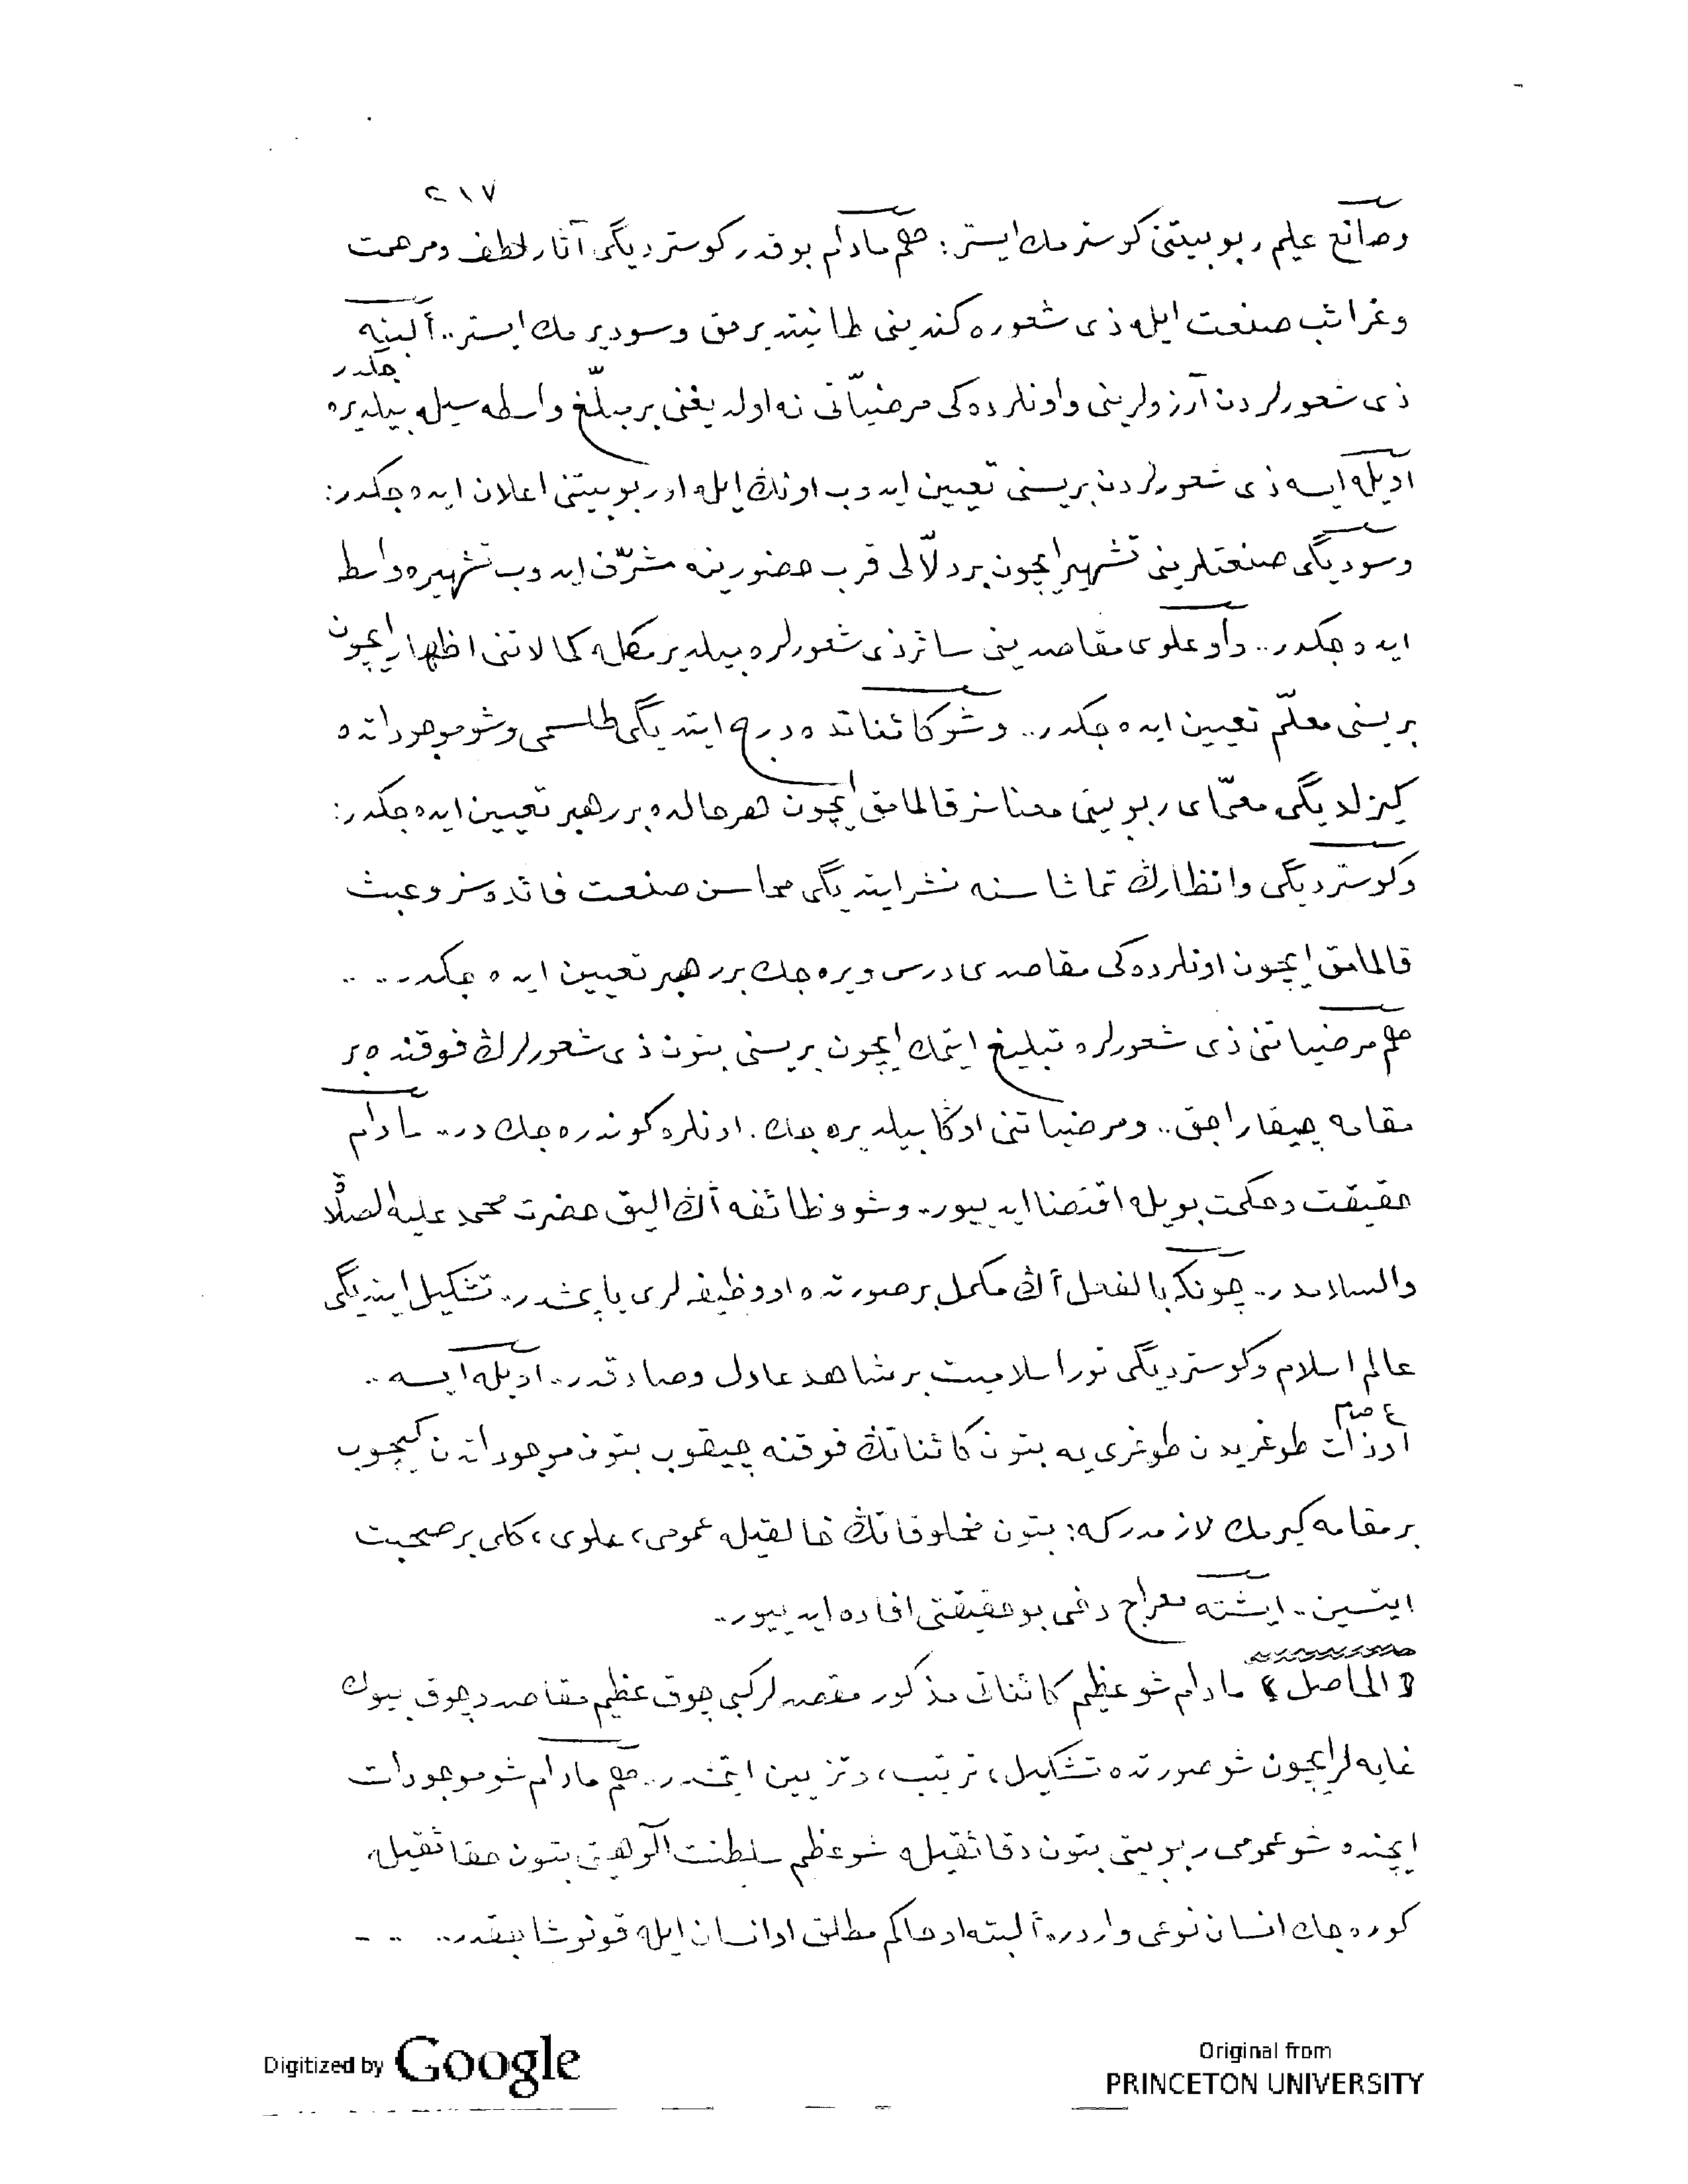 ٢١٧
وصانع عليم ربوبيتنى كوسترمك ايستر: هم مادام بوقدر كوستردیگی آثار لطف ومرحمت
وغرائب صنعت ايله ذى شعوره كندينى طانيتديرمق وسوديرمك ايستر.. ألبته
ذى شعورلردن آرزولرينى واونلرده كى مرضيّاتى نه اولديغنى بر مبلّغ واسطه سيله بيلديره
جكدر
اويله ايسه ذى شعورلردن بريسنى تعيين ايدوب اونڭ ايله او ربوبيتنى اعلان ايده جكدر:
وسودیگی صنعتلرينى تشهير ايچون بر دلّالى قرب حضورينه مشرّف ايدوب تشهيره واسطه
ايده جكدر.. واو علوى مقاصدينى سائر ذى شعورلره بيلديرمكله كمالاتنى اظهار ايچون
بريسنى معلّم تعيين ايده جكدر.. وشو كائناتده درج ايتدیگی طلسمى وشو موجوداتده
كيزلدیگی معمّاى ربوبيتى معناسز قالمامق ايچون هر حالده بر رهبر تعيين ايده جكدر:
وكوستردیگی وانظارڭ تماشاسنه نشر ايتدیگی محاسن صنعت فائده سز وعبث
قالمامق ايچون اونلرده كى مقاصدى درس ويره جك بر رهبر تعيين ايده جكدر....
هم مرضياتنى ذى شعورلره تبليغ ايتمك ايچون بريسنى بتون ذى شعورلرڭ فوقنده بر
مقامه چيقاراجق.. ومرضياتنى اوڭا بيلديره جك. اونلره كوندره جك در.. مادام
حقيقت وحكمت بويله اقتضا ايدييور.. وشو وظائفه أڭ اليق حضرت محمد عليه الصلاة
والسلامدر.. چونكه بالفعل أڭ مكمل بر صورتده او وظيفه لرى ياپمشدر.. تشكيل ايتدیگی
عالم اسلام وكوستردیگی نور اسلاميت بر شاهد عادل وصادقدر.. اويله ايسه..
ع صم
او ذات طوغريدن طوغرى يه بتون كائناتڭ فوقنه چيقوب بتون موجوداتدن كچوب
بر مقامه كيرمك لازمدركه: بتون مخلوقاتڭ خالقيله عمومى، علوى، كلى بر صحبت
ايتسين.. ايشته معراج دخى بو حقيقتى افاده ايدييور..
﴿الحاصل﴾ مادام شو عظيم كائنات مذكور مقصدلر كبى چوق عظيم مقاصد وچوق بيوك
غايه لر ايچون شو صورتده تشكيل، ترتيب، وتزيين ايتمشدر.. هم مادام شو موجودات
ايچنده شو عمومى ربوبيتى بتون دقائقيله شو عظيم سلطنت الوهيتى بتون حقائقيله
كوره جك انسان نوعى واردر. ألبته او حاكم مطلق او انسان ايله قونوشاجقدر.. .. -
Digitized by Google
Original from
PRINCETON UNIVERSITY